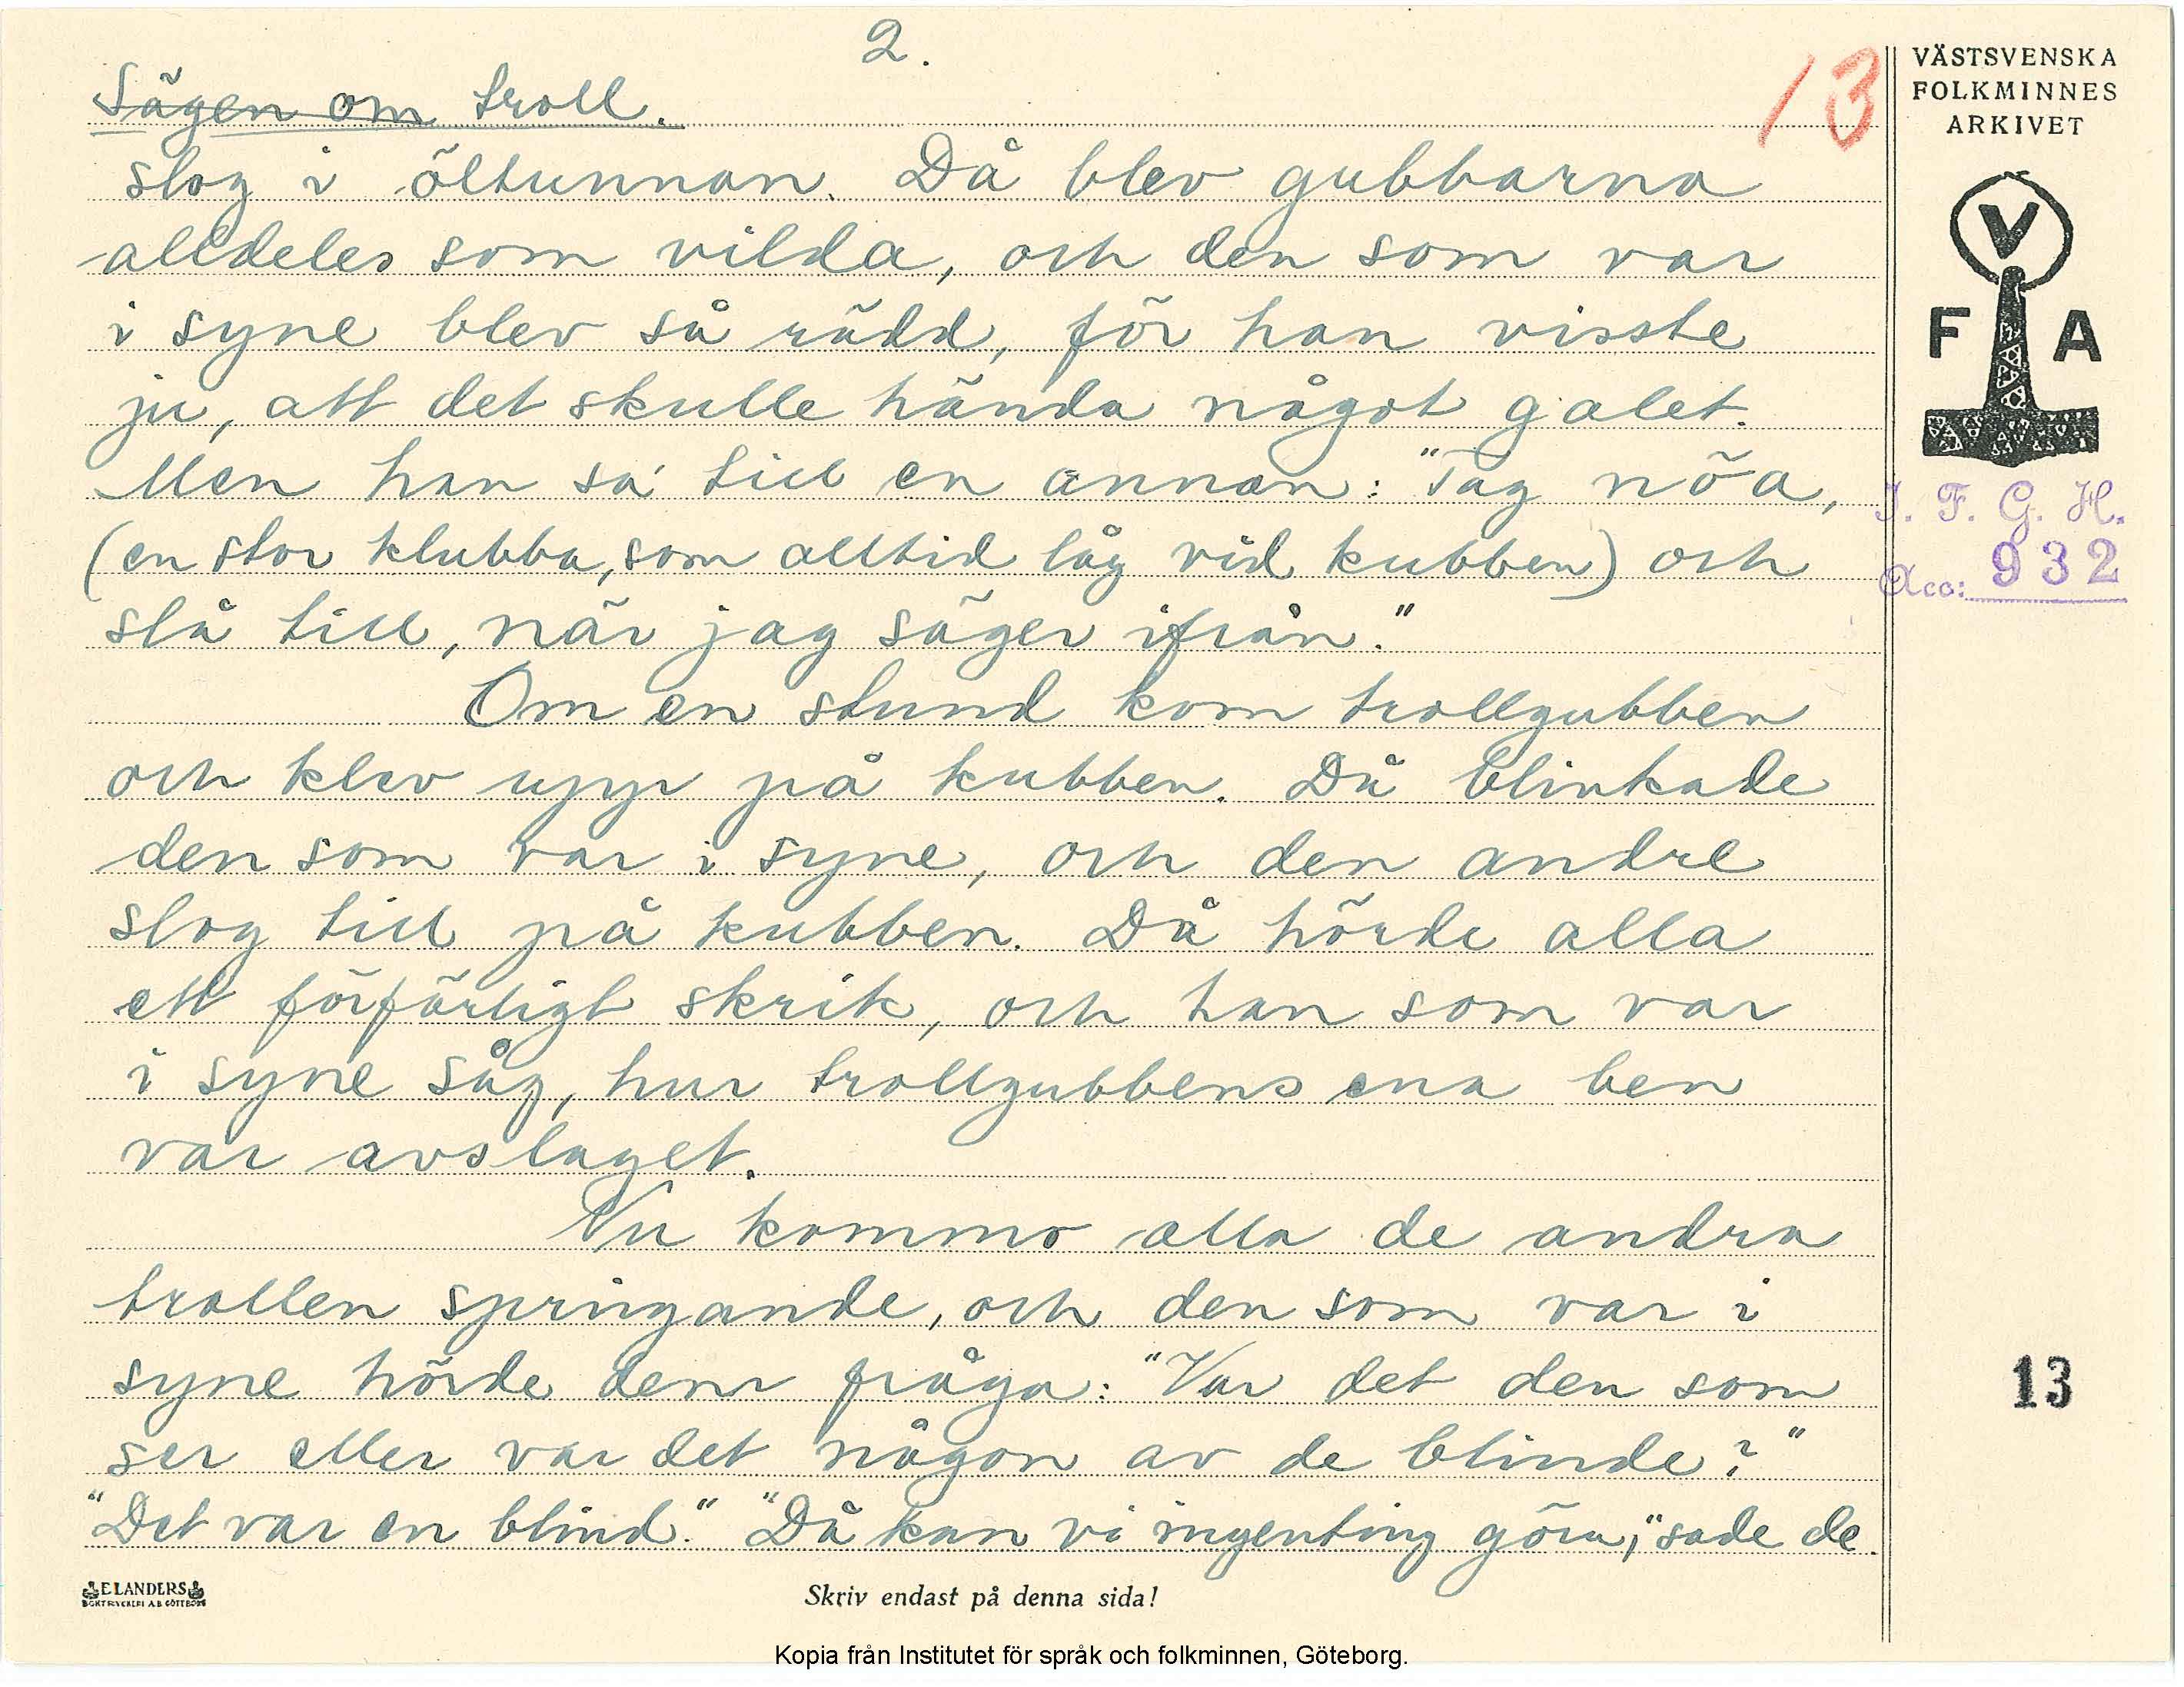 2.
13
Sägen om troll.
slog i öltunnan. Då blev gubbarna
alldeles som vilda, och den som var
i syne blev så rädd, för han visste
ju, att det skulle hända något galet.
Men han sa' till en annan: "Tag nöa,
(en stor klubba, som alltid låg vid kubben) och
slå till, när jag säger ifrån."
Om en stund kom trollgubben
och klev upp på kubben. Då blinkade
den som var i syne, och den andre
slog till på kubben. Då hörde alla
ett förfärligt skrik, och han som var
i syne såg, hur trollgubbens ena ben
var avslaget.
Nu kommo alla de andra
trollen springande, och den som var i
syne hörde dem fråga: "Var det den som
ser eller var det någon av de blinde?"
"Det var en blind." "Då kan vi ingenting göra," sade de.
VÄSTSVENSKA
FOLKMINNES
ARKIVET
V
F A
I. F. G. H.
Acc: 932
13
ELANDERS
BOKTRYCKERI A.B. GÖTEBORG
Skriv endast på denna sida!
Kopia från Institutet för språk och folkminnen, Göteborg.